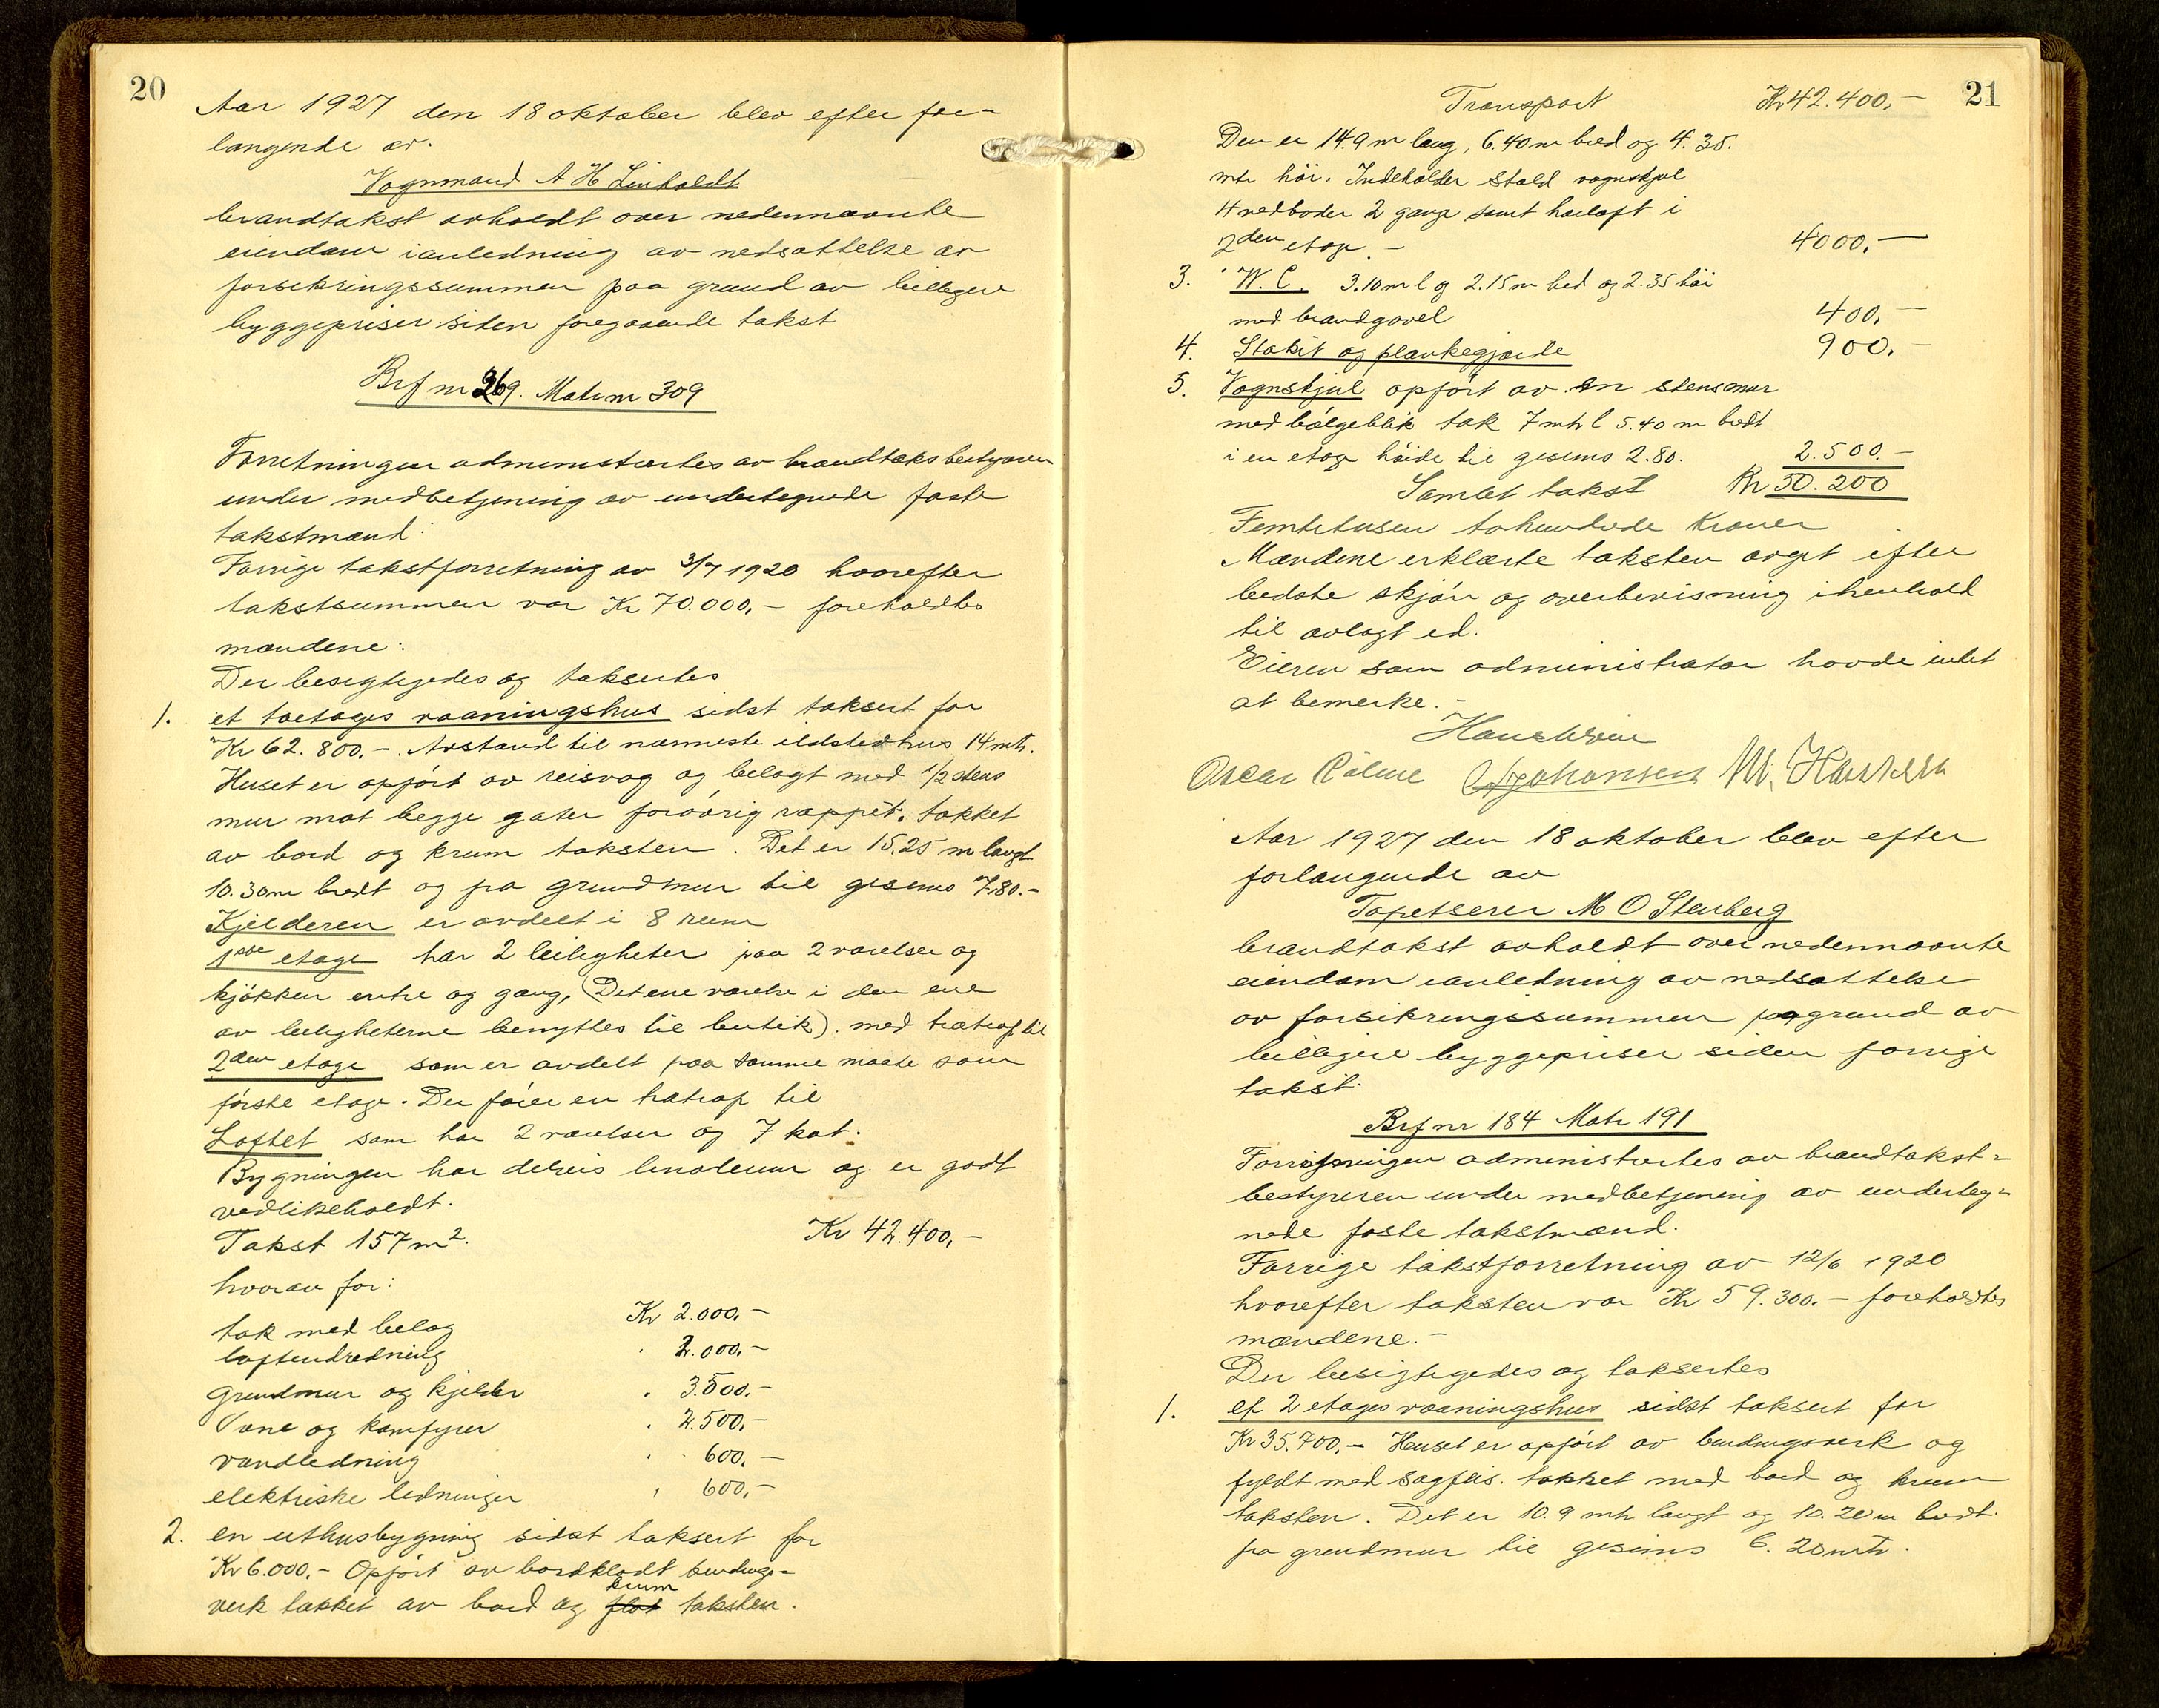 20
Aar 1927 den 18 oktober blev efter for-
langende av.
Vognmand A H Linholdt
brandtakst avholdt over nedennævnte
eiendom i anledning av nedsættelse av
forsikringssummen paa grund av billigere
byggepriser siden foregaaende takst
Brf nr 369. Matr nr 309
Forretningen administrertes av brandtakstbestyreren
under medbetjening av undertegnede faste
takstmænd:
Forrige takstforretning av 3/7 1920 hvorefter
takstsummen var Kr 70.000,- foreholdtes
mændene:
Der besigtigedes og taksertes
1. et toetages vaaningshus sidst taksert for
Kr 62.800,- Avstand til nærmeste ildstedhus 14 mtr.
Huset er opført av reisvæg og belagt med 1/2 stens
mur mot begge gater forøvrig rappet. Tækket
av bord og krum taksten. Det er 15.25 m langt
10.30 m bredt og fra grundmur til gesims 7.80.-
Kjelderen er avdelt i 8 rum
1ste etage har 2 leiligheter paa 2 værelser og
kjøkken entre og gang, (Det ene værelse i den ene
av leiligheterne benyttes til butik). med trætrap til
2den etage som er avdelt paa samme maate som
første etage. Der fører en trætrap til
Loftet som har 2 værelser og 7 kot.
Bygningen har delvis linoleum og er godt
vedlikeholdt.
Takst 157 m2. Kr 42.400,-
hvorav for:
tak med belæg Kr 2.000,-
loftindredning " 2.000,-
Grundmur og kjelder " 3.500,-
Ovne og komfyrer " 2.500,-
vandledning " 600,-
elektriske ledninger " 600,-
2. en uthusbygning sidst taksert for
Kr 6.000,- Opført av bordklædt bindings-
krum
verk tækket av bord og flat taksten.
21
Transport Kr 42.400,-
Den er 14.9 m lang, 6.40 m bred og 4.35.
mtr høi. Indeholder stald vognskjul
4 vedboder 2 gange samt høiloft i
2den etage.- 4000,-
3. W. C. 3.10 m l og 2.15 m bred og 2.35 høi
med brandgavel 400,-
4. Stakit og plankegjærde 900,-
5. Vognskjul opført av en stensmur
med bølgeblik tak 7 mtr l 5.40 m bredt
i en etage høide til gesims 2.80. 2.500.-
Samlet takst Kr 50.200
Femtitusen tohundrede Kroner
Mændene erklærte taksten avgit efter
bedste skjøn og overbevisning i henhold
til avlagt ed.
Eieren som administrator havde intet
at bemerke.-
Oscar Johansen M. Hansen
Aar 1927 den 18 oktober blev efter
forlangende av
Tapetserer M O Stenberg
brandtakst avholdt over nedennævnte
eiendom i anledning av nedsættelse
av forsikringssummen paa grund av
billigere byggepriser siden forrige
takst.
Brf nr 184 Matr 191
Forretningen administrertes av brandtakst-
bestyreren under medbetjening av underteg-
nede faste takstmænd.
Forrige takstforretning av 12/6 1920
hvorefter taksten var Kr 59.300.- foreholdtes
mændene.-
Der besigtigedes og taksertes
1. et 2 etages vaaningshus sidst taksert for
Kr 35.700,- Huset er opført av bindingsverk og
fyldt med sagflis. tækket med bord og krum
taksten. Det er 10.9 mtr langt og 10.20 m bredt.
fra grundmur til gesims 6.20 mtr.